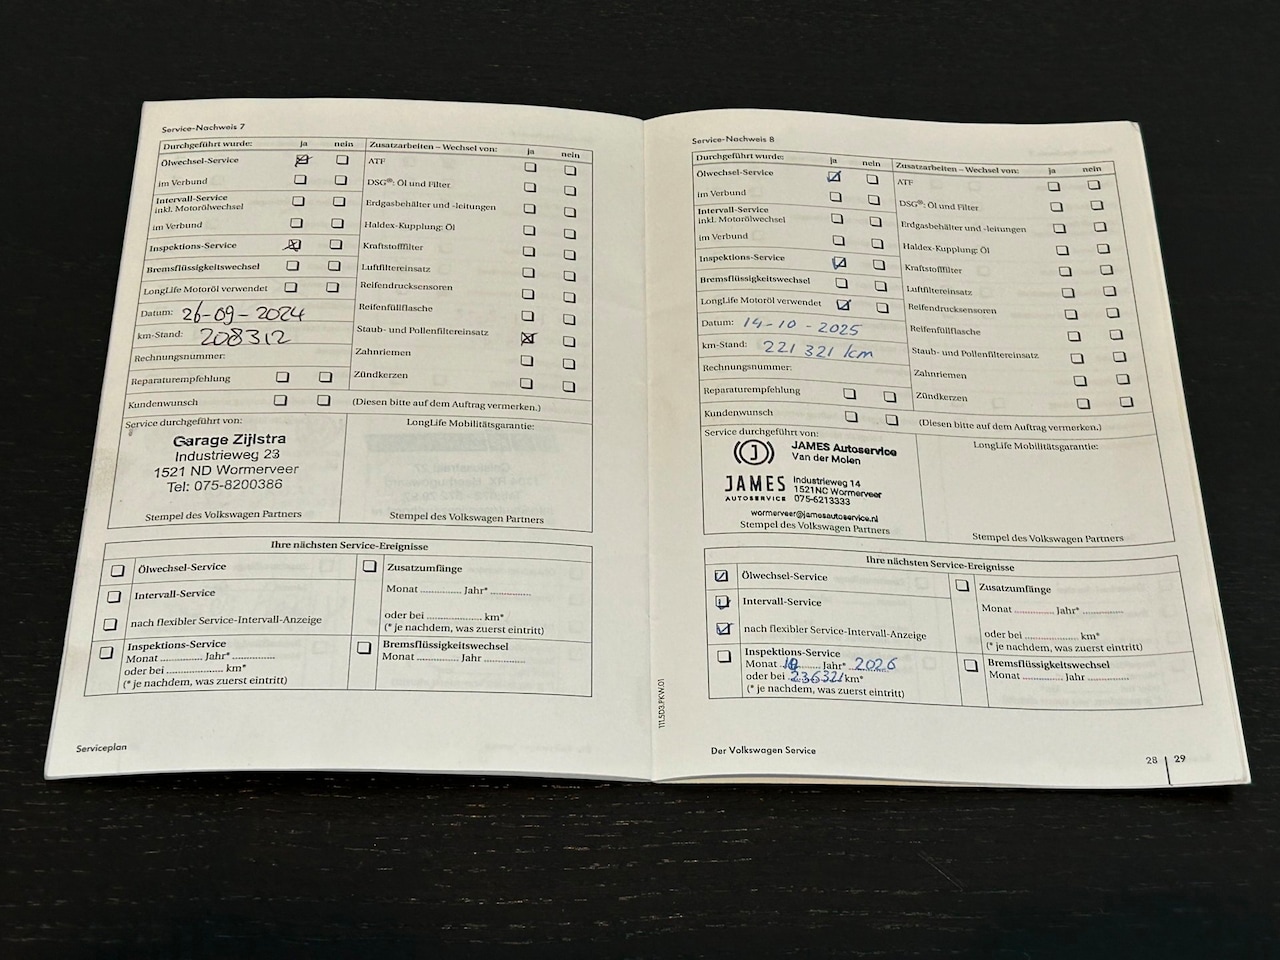 Service-Nachweis 7
Durchgeführt wurde: ja nein
Ölwechsel-Service
im Verbund
Intervall-Service
inkl. Motorölwechsel
im Verbund
Inspektions-Service
Bremsflüssigkeitswechsel
LongLife Motoröl verwendet
Datum: 26-09-2024
km-Stand: 208312
Rechnungsnummer:
Reparaturempfehlung
Kundenwunsch
Zusatzarbeiten – Wechsel von: ja nein
ATF
DSG®: Öl und Filter
Erdgasbehälter und -leitungen
Haldex-Kupplung: Öl
Kraftstofffilter
Luftfiltereinsatz
Reifendrucksensoren
Reifenfüllflasche
Staub- und Pollenfiltereinsatz
Zahnriemen
Zündkerzen
(Diesen bitte auf dem Auftrag vermerken.)
Service durchgeführt von:
Garage Zijlstra
Industrieweg 23
1521 ND Wormerveer
Tel: 075-8200386
Stempel des Volkswagen Partners
LongLife Mobilitätsgarantie:
Stempel des Volkswagen Partners
Ihre nächsten Service-Ereignisse
Ölwechsel-Service
Intervall-Service
nach flexibler Service-Intervall-Anzeige
Inspektions-Service
Monat ............ Jahr* ............
oder bei ............ km*
(* je nachdem, was zuerst eintritt)
Zusatzumfänge
Monat ............ Jahr* ............
oder bei ............ km*
(* je nachdem, was zuerst eintritt)
Bremsflüssigkeitswechsel
Monat ............ Jahr ............
Serviceplan
Service-Nachweis 8
Durchgeführt wurde: ja nein
Ölwechsel-Service
im Verbund
Intervall-Service
inkl. Motorölwechsel
im Verbund
Inspektions-Service
Bremsflüssigkeitswechsel
LongLife Motoröl verwendet
Datum: 14-10-2025
km-Stand: 221 321 km
Rechnungsnummer:
Reparaturempfehlung
Kundenwunsch
Zusatzarbeiten – Wechsel von: ja nein
ATF
DSG®: Öl und Filter
Erdgasbehälter und -leitungen
Haldex-Kupplung: Öl
Kraftstofffilter
Luftfiltereinsatz
Reifendrucksensoren
Reifenfüllflasche
Staub- und Pollenfiltereinsatz
Zahnriemen
Zündkerzen
(Diesen bitte auf dem Auftrag vermerken.)
Service durchgeführt von:
J
JAMES
AUTOSERVICE
JAMES Autoservice
Van der Molen
Industrieweg 14
1521NC Wormerveer
075-6213333
wormerveer@jamesautoservice.nl
Stempel des Volkswagen Partners
LongLife Mobilitätsgarantie:
Stempel des Volkswagen Partners
Ihre nächsten Service-Ereignisse
Ölwechsel-Service
Intervall-Service
nach flexibler Service-Intervall-Anzeige
Inspektions-Service
Monat 10 Jahr* 2026
oder bei 236321 km*
(* je nachdem, was zuerst eintritt)
Zusatzumfänge
Monat ............ Jahr* ............
oder bei ............ km*
(* je nachdem, was zuerst eintritt)
Bremsflüssigkeitswechsel
Monat ............ Jahr ............
111.5D3.PKW.01
Der Volkswagen Service
28 | 29